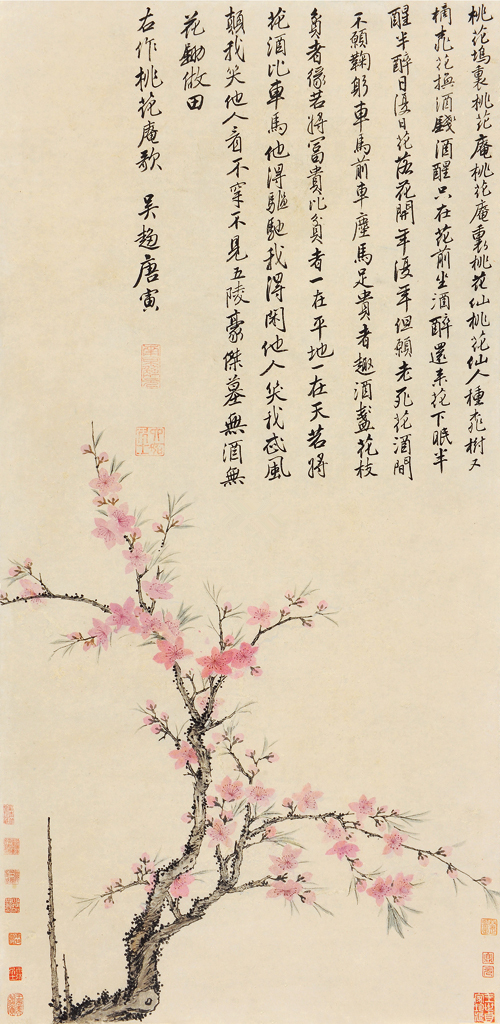 桃花塢裏桃花庵桃花庵裏桃花仙桃花仙人種桃樹又
摘桃花換酒錢酒醒只在花前坐酒醉還来花下眠半
醒半醉日復日花落花開年復年但願老死花酒間
不願鞠躬車馬前車塵馬足貴者趣酒盞花枝
貧者緣若將冨貴比貧者一在平地一在天若將
花酒比車馬他得驅馳我得閑他人笑我忒風
顛我笑他人看不穿不見五陵豪傑墓無酒無
花鋤做田
右作桃花庵歌　吳趨唐寅